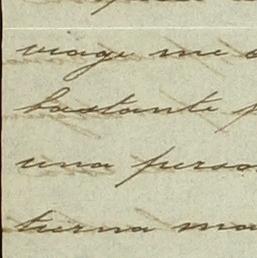 viage me
bastante
una perso
tierna ma